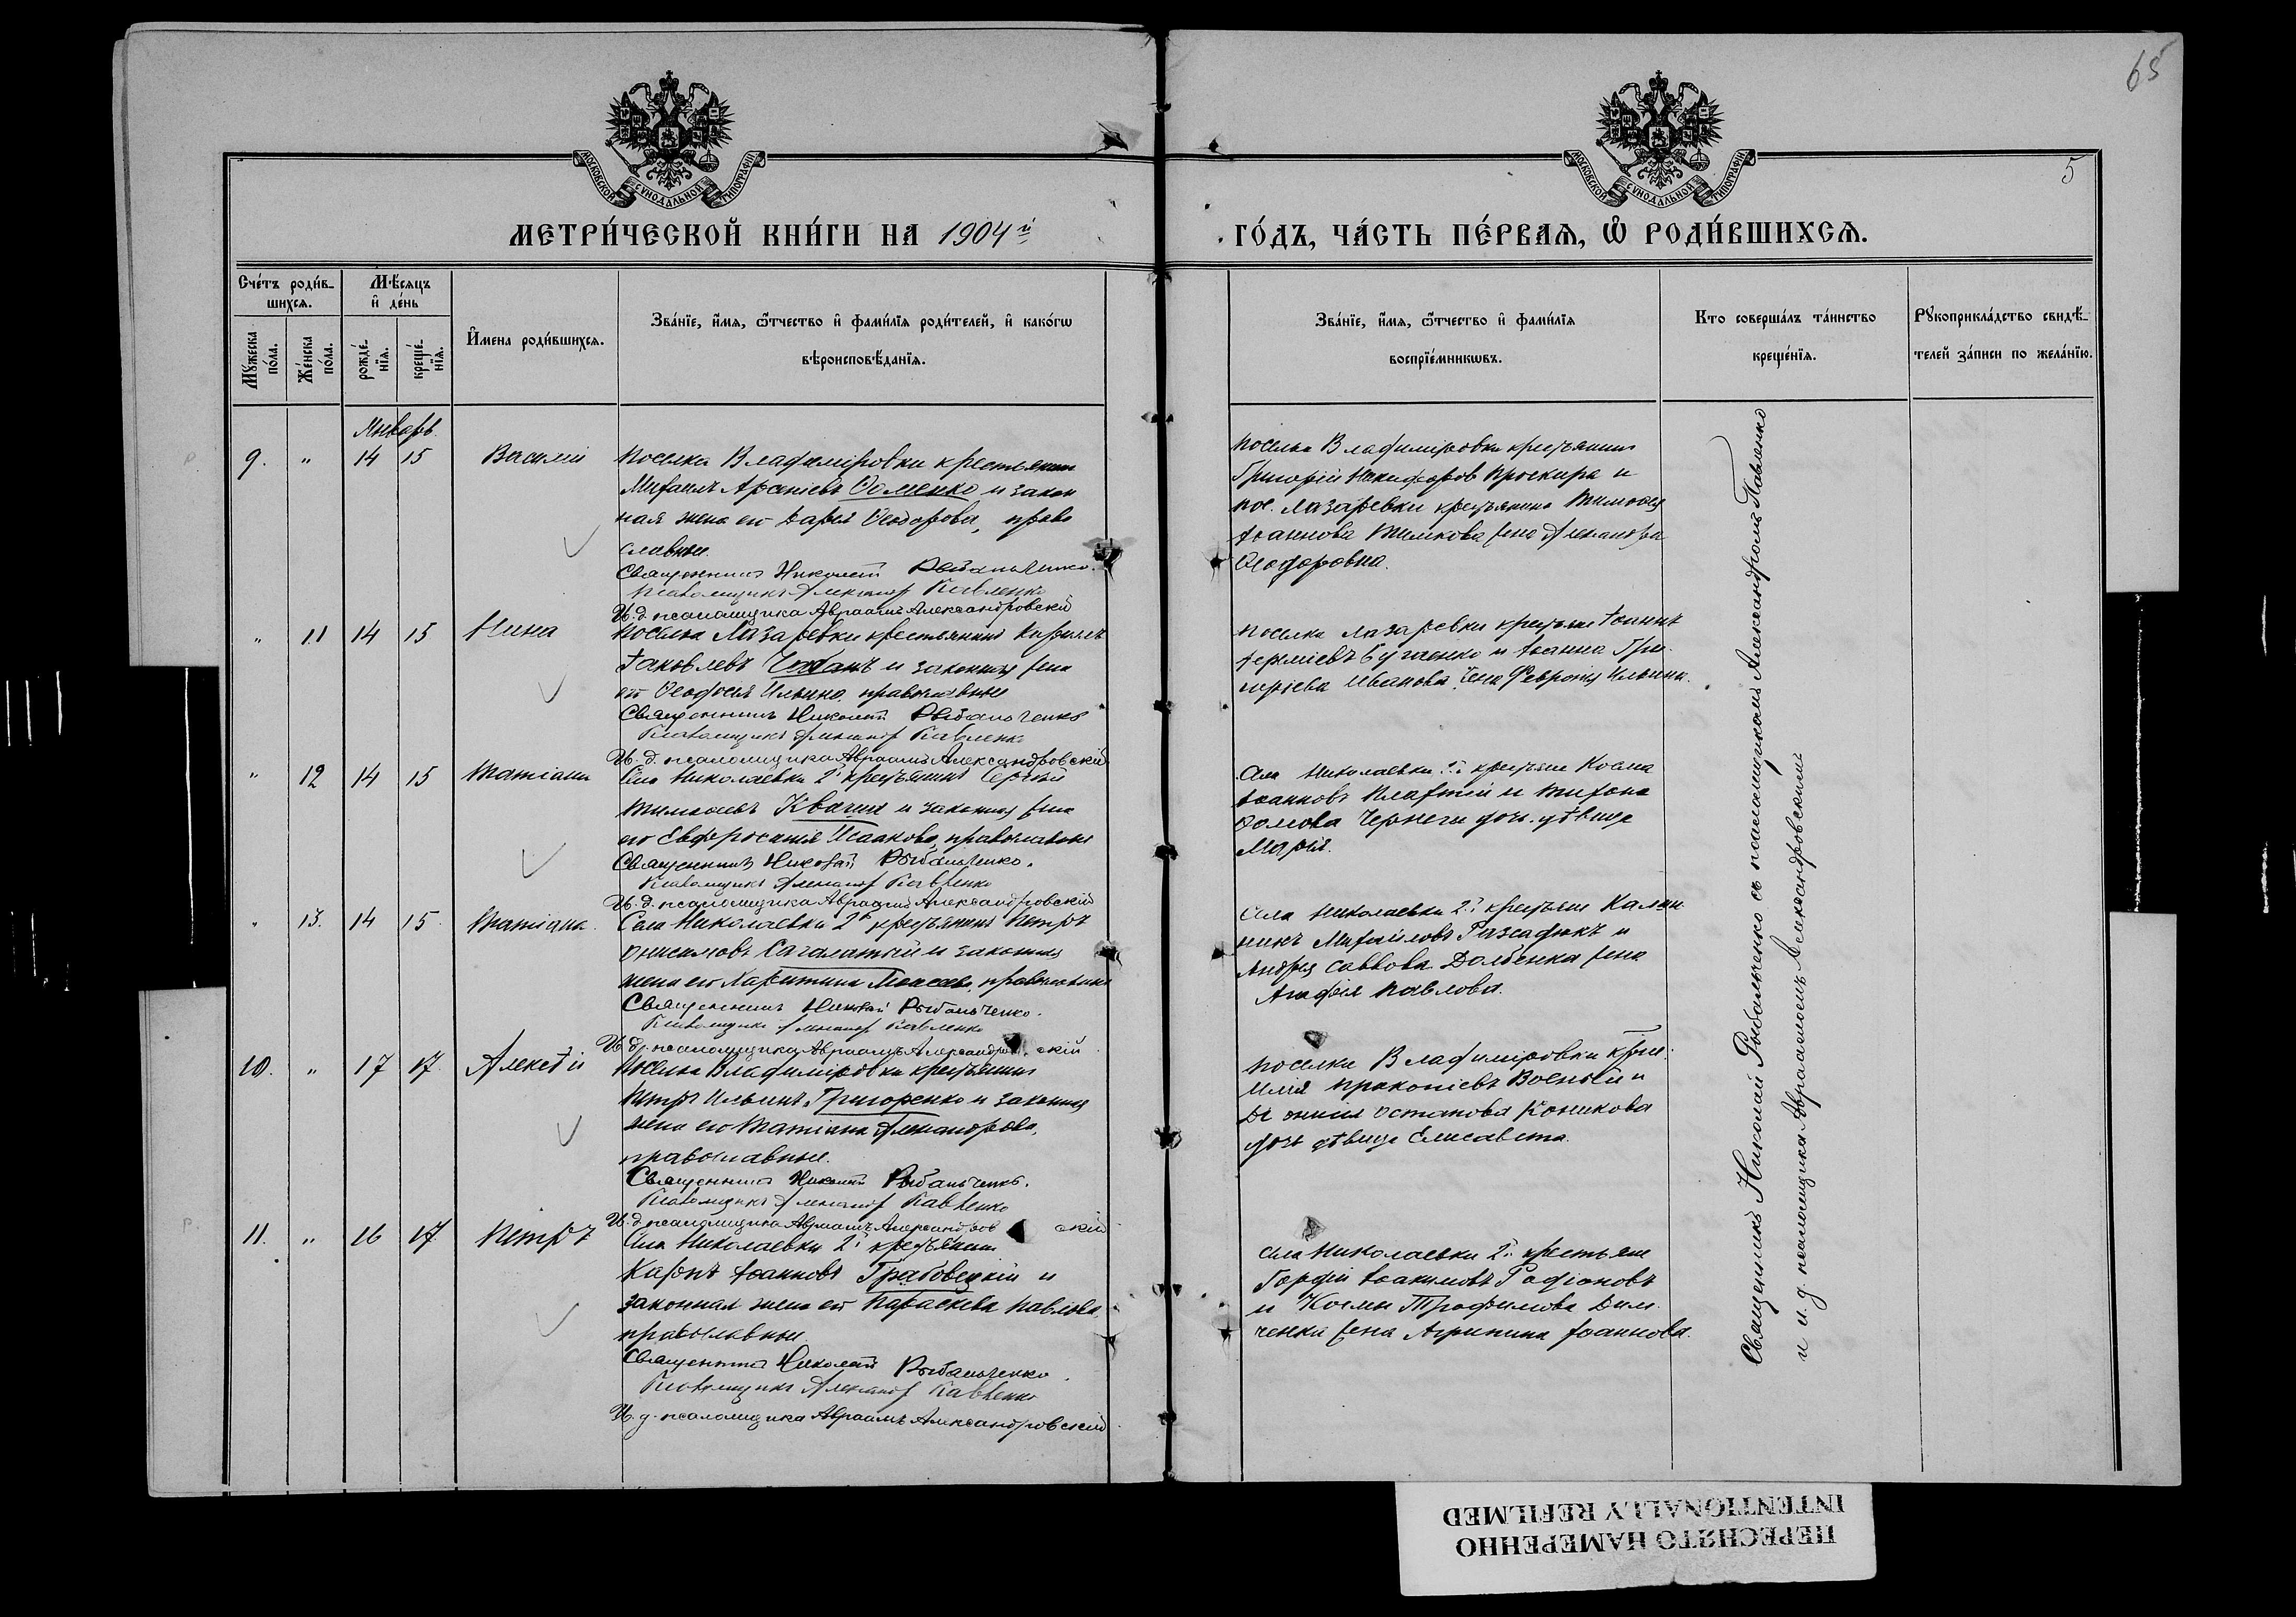 65
5
МОСКОВСКОЙ СѴНОДАЛЬНОЙ ТИПОГРАФІИ
МОСКОВСКОЙ СѴНОДАЛЬНОЙ ТИПОГРАФІИ
МЕТРИ́ЧЕСКОЙ КНИ́ГИ НА 1904й
ГО́ДЪ, ЧА́СТЬ ПЕ́РВАЯ, Ѿ РОДИ́ВШИХСЯ.
Сче́тъ роди́в-
шихся.
Мѣ́сяцъ
и҆ де́нь
Мꙋ́жеска по́ла.
Же́нска по́ла.
рожде́-
нїя.
креще́-
нїя.
И҆мена роди́вшихся.
Зва́нїе, и҆́мя, ѻ҆́тчество и҆ фами́лїя роди́телей, и҆ како́гѡ
вѣроисповѣ́данїя.
Зва́нїе, и҆́мя, ѻ҆́тчество и҆ фами́лїя
воспрїе́мникѡвъ.
Кто соверша́лъ та́инство
креще́нїя.
Рꙋкоприкла́дство свидѣ́-
телей за́писи по жела́нїю.
Январь.
9. " 14 15 Василій
Поселка Владиміровки крестьянинъ
Михаилъ Арсеніевъ Ѳоменко и закон
ная жена его Дарья Ѳеодорова, право
славные.
Священникъ Николай Рыбальченко.
Псаломщикъ Александр Павленко
И. д. псаломщика Авраамъ Александровскій
Поселка Владиміровки крестьянинъ
Григорій Никифоров Проскура и
пос. Лазаревки крестьянина Тимоѳея
Іоаннова жена Александра
Ѳеодоровна.
" 11 14 15 Нина
Поселка Лазаревки крестьянинъ Кириллъ
Іаковлевъ Чабанъ и законная жена
его Ѳеодосія Ильина, православные
Священникъ Николай Рыбальченко
Псаломщикъ Александр Павленко
И. д. псаломщика Авраамъ Александровскій
поселка Лазаревки крестьяне Іоаннъ
и Іоанна Гри-
горіева Иванова жена Февронія Ильина.
" 12 14 15 Татіана
Села Николаевки 2й крестьянинъ Сергій
Тимоѳеевъ Квачия и законная жена
его Евфросинія Исаакова, православные
Священникъ Николай Рыбальченко.
Псаломщикъ Александр Павленко
И. д. псаломщика Авраамъ Александровскій
Села Николаевки 2й крестьяне Косма
Іоанновъ и Тихона
Ѳомова Чернеги доч. дѣвица
Марія.
" 13. 14 15 Татіана.
Села Николаевки 2й крестьянинъ Петръ
Онисимовъ Сагалатий и законная
жена его Харитина Моисеева, православные
Священникъ Николай Рыбальченко.
Псаломщикъ Александр Павленко
И. д. псаломщика Авраамъ Александровскій
Села Николаевки 2й крестьяне Калин
никъ Михайловъ и
Андрея Саввова Долбенка жена
Агафія Павлова.
10. " 17 17. Алексѣй
Поселка Владиміровки крестьянинъ
Петръ Ильинъ Григоренко и законная
жена его Татіана Александрова,
православные.
Священникъ Николай Рыбальченко.
Псаломщикъ Александр Павленко
И. д. псаломщика Авраамъ Александровскій
поселка Владиміровки крест.
Илія Прокопіевъ и
Остапова Коникова
дочь дѣвица Елисавета.
11. " 16 17 Петръ
Села Николаевки 2й крестьянинъ
Карпъ Іоанновъ Грабовецкій и
законная жена его Параскева Павлова,
православные.
Священникъ Николай Рыбальченко.
Псаломщикъ Александр Павленко
И. д. псаломщика Авраамъ Александровскій
села Николаевки 2й крестьяне
Гордій Іоакимовъ Родіоновъ
и Космы Трофимова Дим
ченка жена Агрипина Іоаннова.
Священникъ Николай Рыбальченко съ псаломщикомъ Александромъ Павленко
и и. д. псаломщика Авраамомъ Александровскимъ
ПЕРЕСНЯТО НАМЕРЕННО
INTENTIONALLY REFILMED